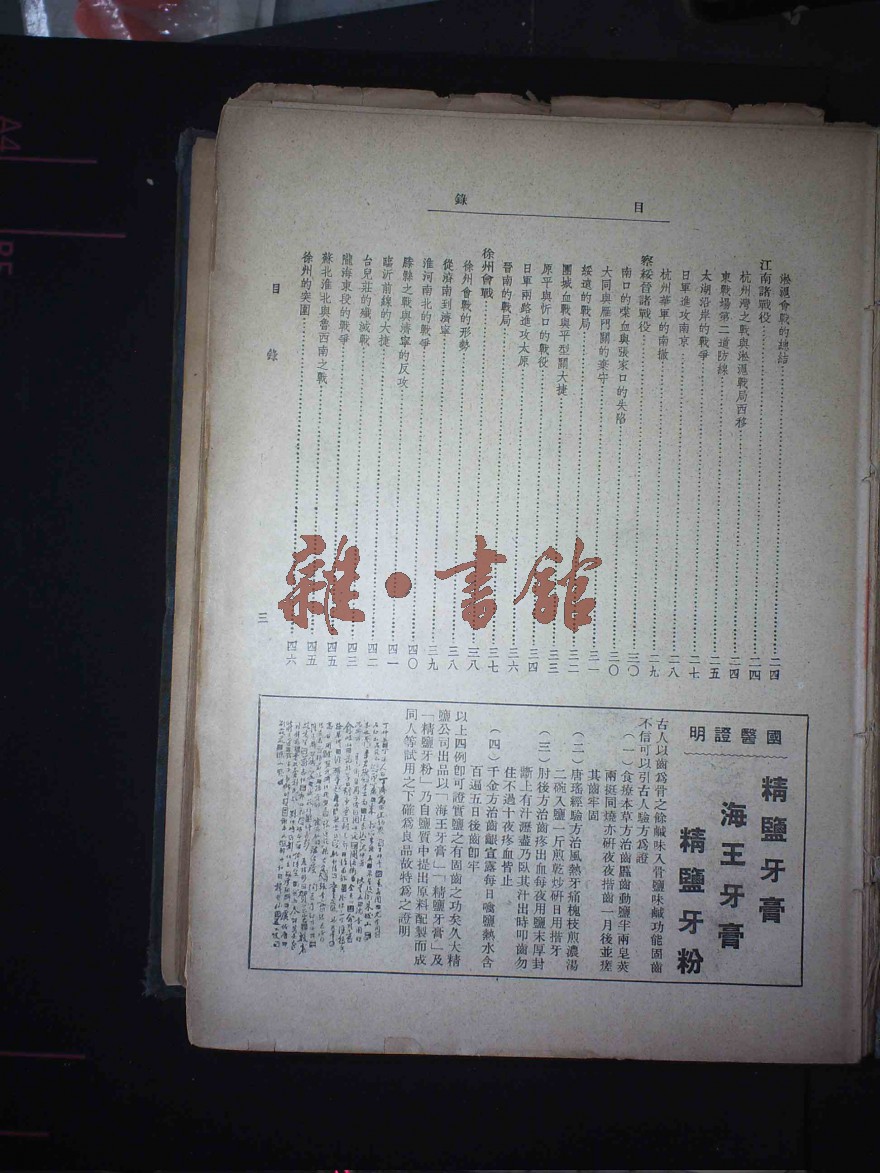 目錄
淞滬會戰的總結……二四
江南諸戰役……二四
杭州灣之戰與淞滬戰局西移……二四
東戰場第二道防線……二五
太湖沿岸的戰爭……二七
日軍進攻南京……二八
杭州華軍的南撤……二九
察綏晉諸戰役……三〇
南口的喋血與張家口的失陷……三〇
大同與雁門關的棄守……三一
綏遠的戰局……三二
團城血戰與平型關大捷……三三
原平與忻口的戰役……三四
日軍兩路進攻太原……三六
晉南的戰局……三七
徐州會戰……三八
徐州會戰的形勢……三八
從濟南到濟寧……三九
淮河南北的戰爭……四〇
滕縣之戰與濟寧的反攻……四一
臨沂前線的大捷……四二
台兒莊的殲滅戰……四三
隴海東段的戰爭……四五
蘇北淮北與魯西南之戰……四五
徐州的突圍……四六
目錄
三
國醫證明
精鹽牙膏
海王牙膏
精鹽牙粉
古人以齒爲骨之餘鹹味入骨鹽味鹹功能固齒
不信可以引古人驗方爲證
（一）食療本草方治齒䘌齒動鹽半兩皂莢
兩挺同燒赤研夜夜揩齒一月後並瘥
其齒牢固
（二）唐瑤經驗方治風熱牙痛槐枝煎濃湯
二碗入鹽一斤煎乾炒研日用揩牙
（三）肘後方治齒疼出血每夜用鹽末厚封
齗上有汁瀝盡乃臥其汁出時叩齒勿
住不過十夜疼血皆止
（四）千金方治齒齦宣露每日噙鹽熱水含
百遍五日後齒卽牢
以上四例卽可證實鹽之有固齒之功矣久大精
鹽公司出品以「海王牙膏」「精鹽牙膏」及
「精鹽牙粉」乃自鹽質中提出原料配製而成
同人等試用之下確爲良品故特爲之證明
雜·書館